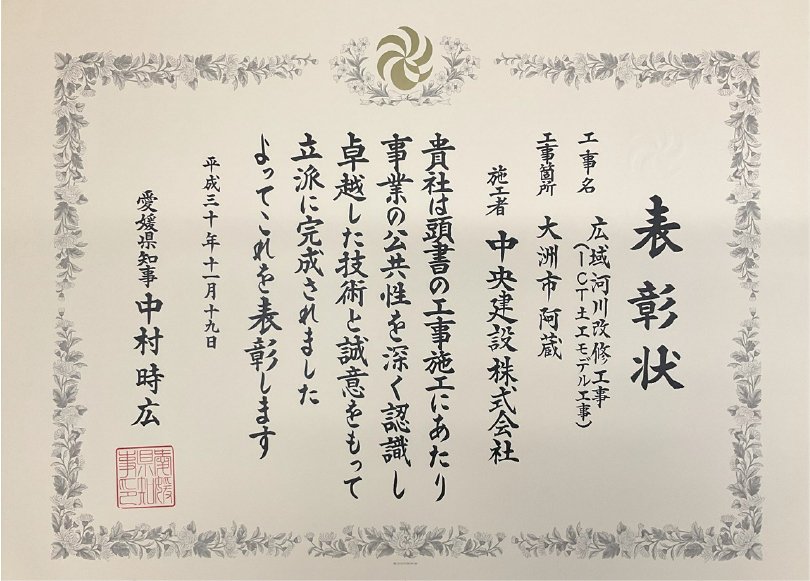 表彰状
工事名 広域河川改修工事
(ICT土工モデル工事)
工事箇所 大洲市阿蔵
施工者 中央建設株式会社
貴社は頭書の工事施工にあたり
事業の公共性を深く認識し
卓越した技術と誠意をもって
立派に完成されました
よってこれを表彰します
平成三十年十一月十九日
愛媛県知事 中村時広
愛媛
県知
事印